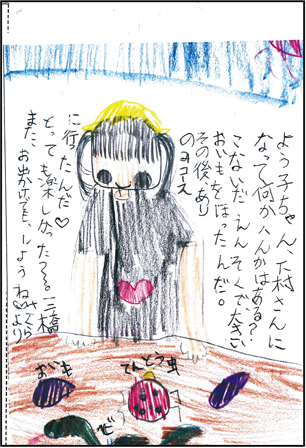 よう子ちゃん、仁村さんに
なって何かへんかはある?
こないだえんそくで大きい
おいもをほったんだ。
その後、あり
のコース
に行ったんだ♡
とっても楽しかったよ。
また、お出かけ、しようね
より
おいも
てんとう虫